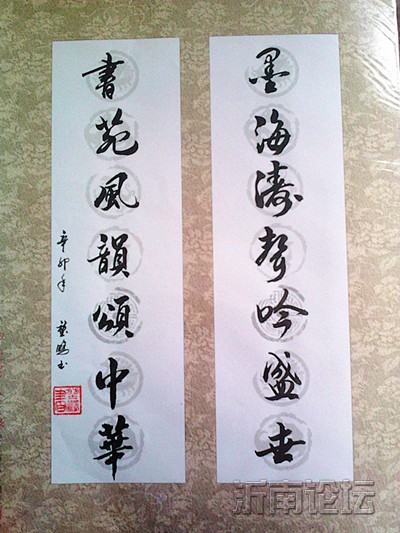 墨海濤聲吟盛世
書苑風韻頌中華
辛卯年
書
沂南论坛